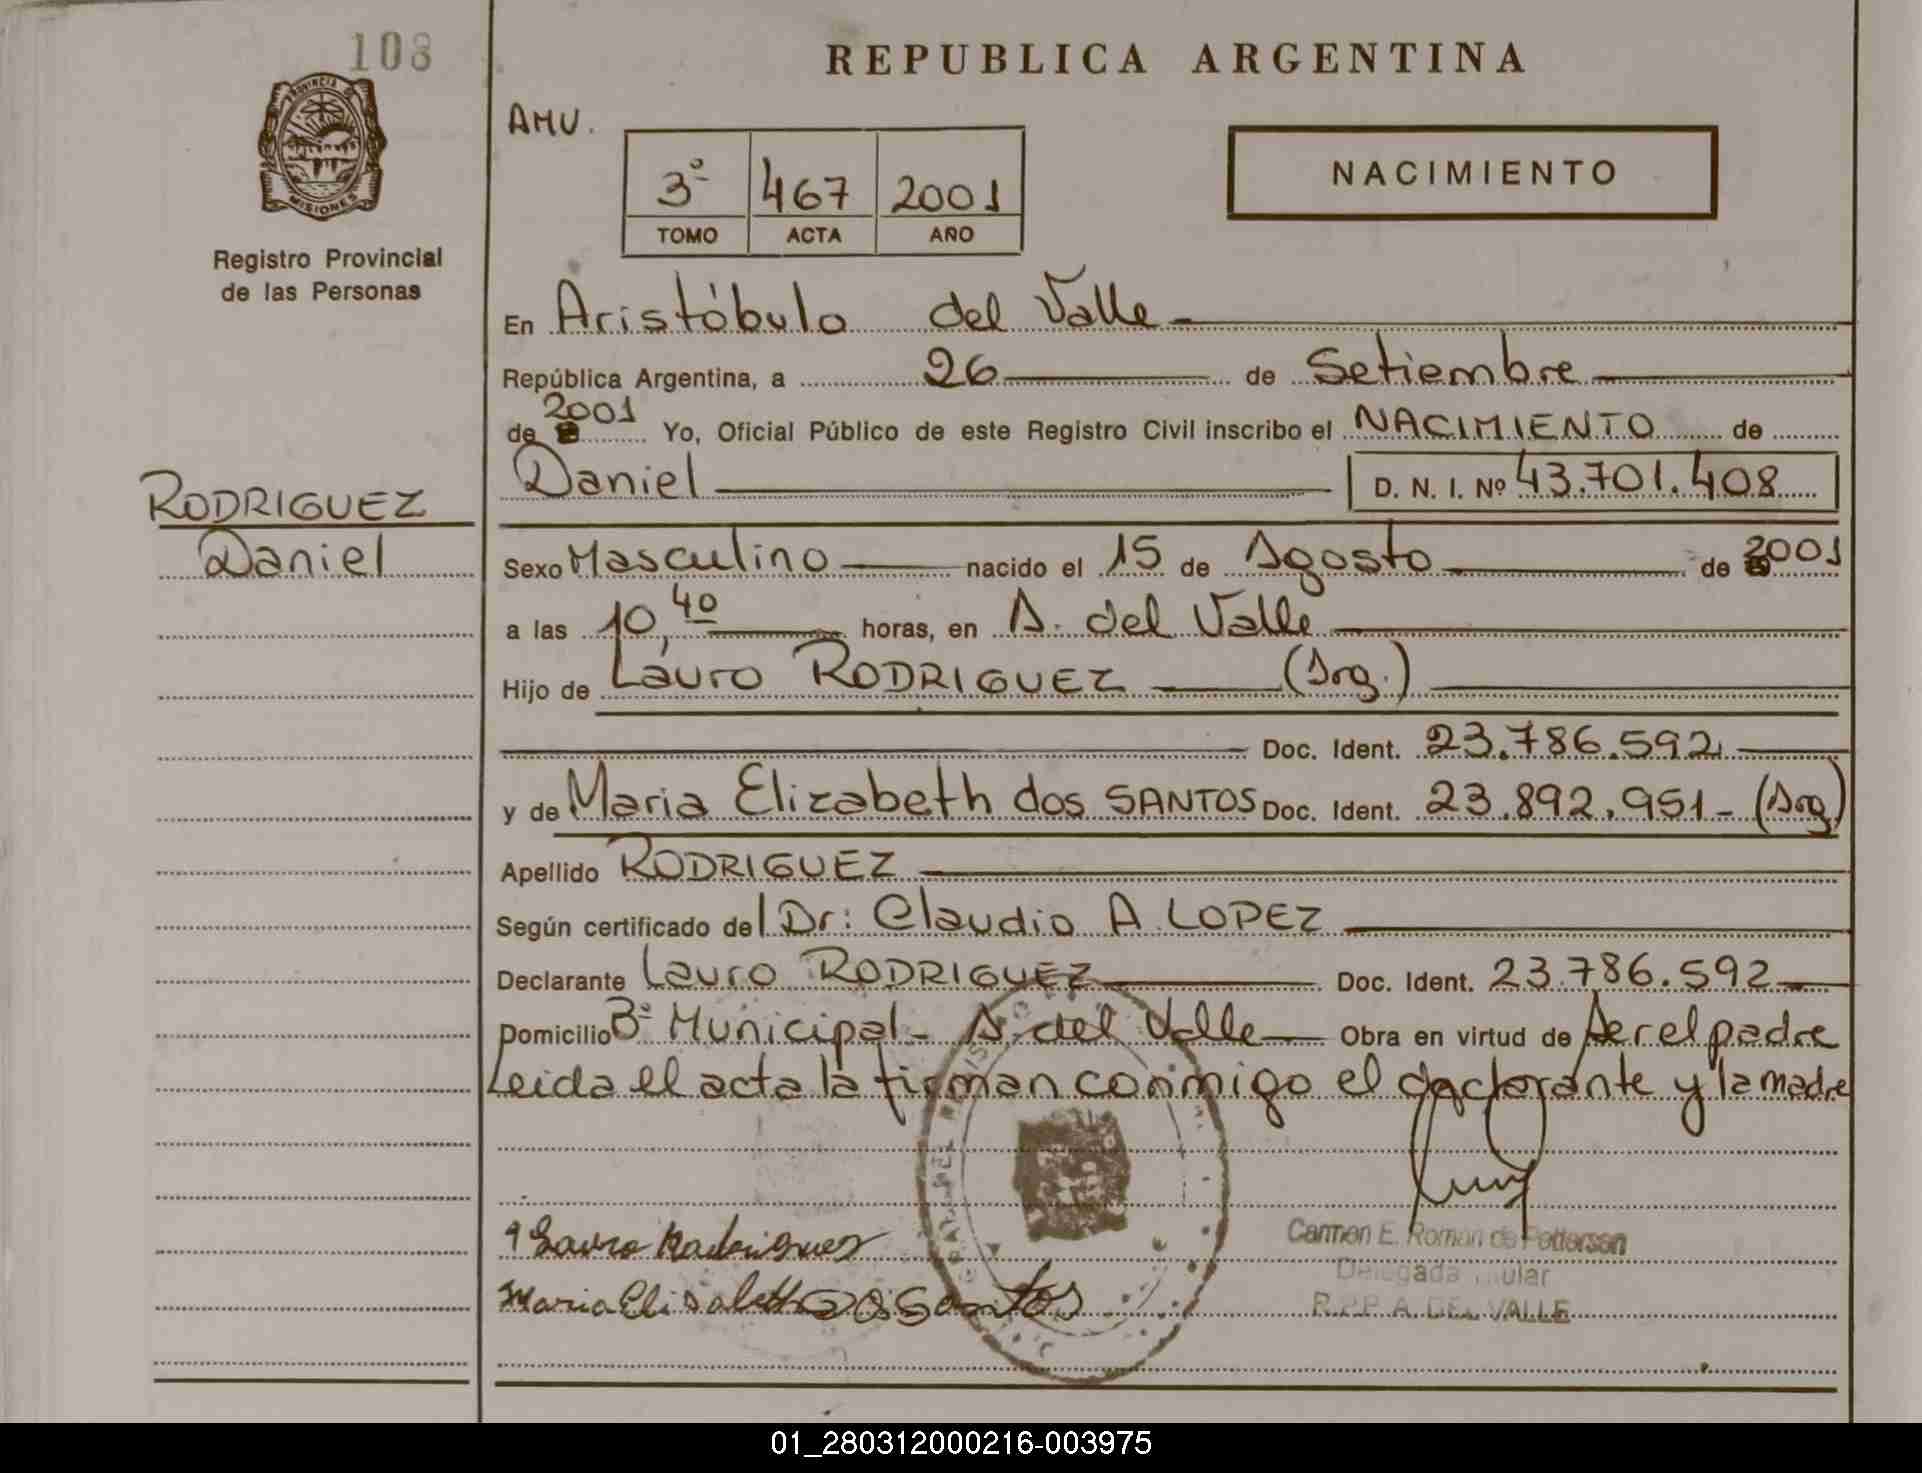 108
PROVINCIA DE
MISIONES
Registro Provincial
de las Personas
RODRIGUEZ
Daniel
REPUBLICA ARGENTINA
AMU.
3º 467 2001
TOMO ACTA AÑO
NACIMIENTO
En Aristóbulo del Valle
República Argentina, a 26 de Setiembre
de 2001 Yo, Oficial Público de este Registro Civil inscribo el NACIMIENTO de
Daniel D. N. I. Nº 43.701.408
Sexo Masculino nacido el 15 de Agosto de 2001
a las 10,40 horas, en A. del Valle
Hijo de Lauro RODRIGUEZ (Arg.)
Doc. Ident. 23.786.592
y de Maria Elizabeth dos SANTOS Doc. Ident. 23.892.951- (Arg)
Apellido RODRIGUEZ
Según certificado del Dr: Claudio A LOPEZ
Declarante Lauro RODRIGUEZ Doc. Ident. 23.786.592
Domicilio Bº Municipal- A. del Valle Obra en virtud de ser el padre
Leida el acta la firman conmigo el declarante y la madre
Lauro Rodriguez
Maria Elisabeth dos Santos
Carmen E. Roman de Pettersen
Delegada Titular
R.P.P. A. DEL VALLE
01_280312000216-003975